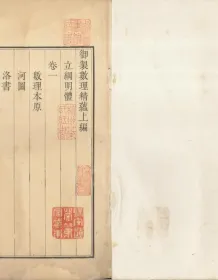 御製數理精蘊上編
立綱明體
卷一
數理本原
河圖
洛書